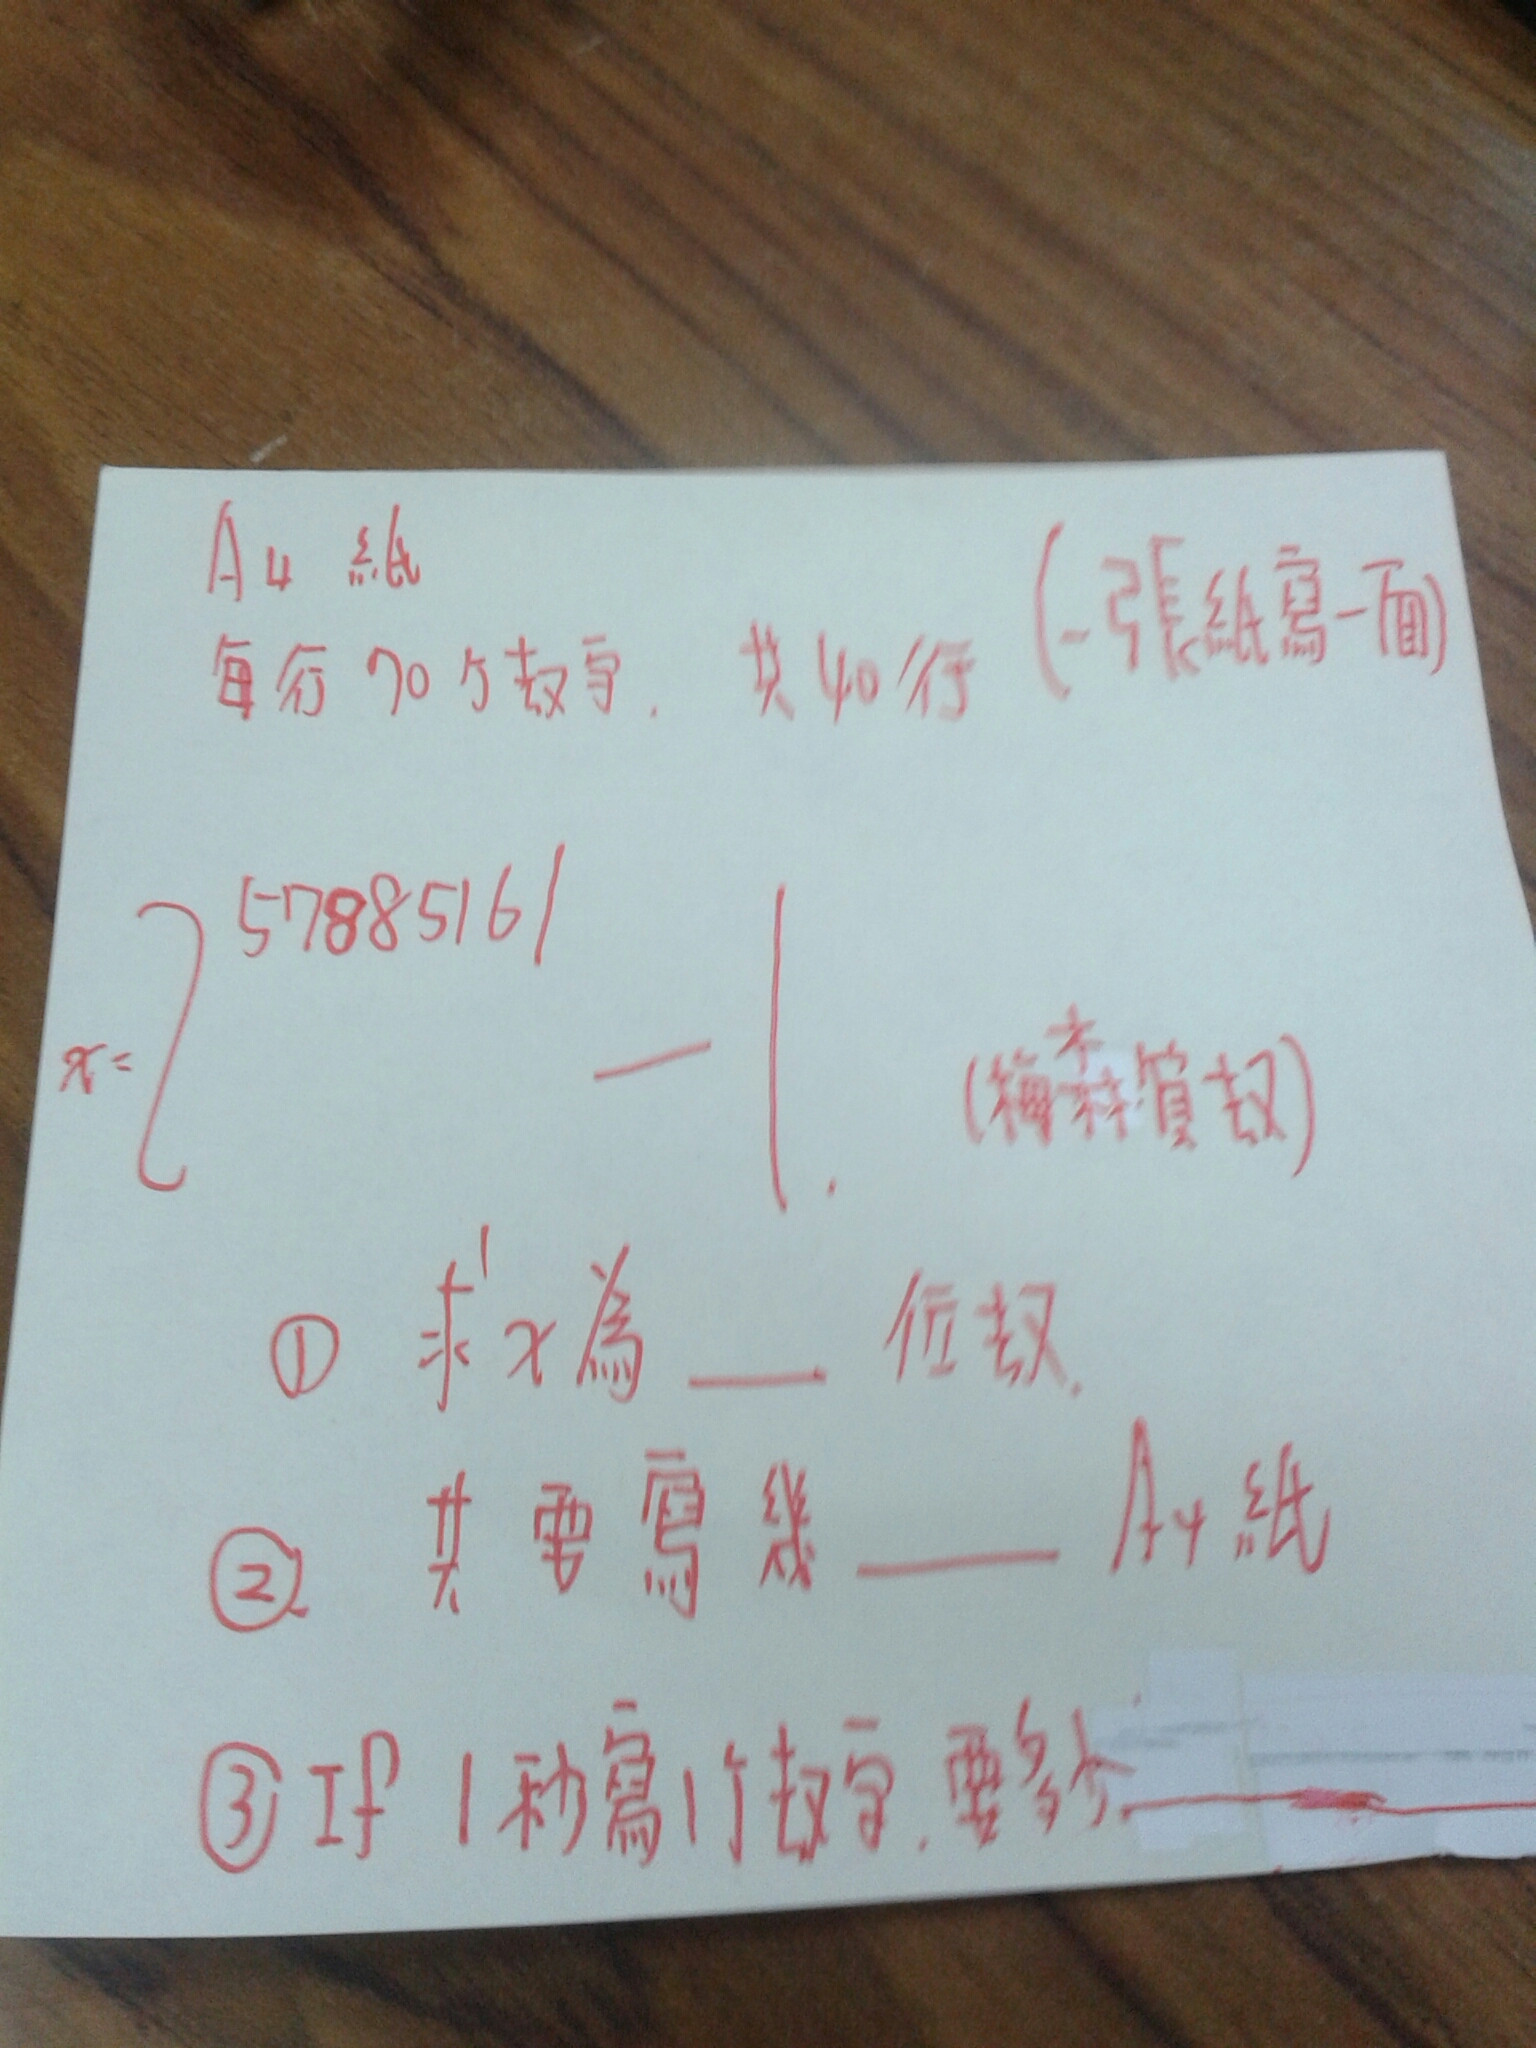 A4 紙
每行 70个数字. 共 40行 (一張紙寫一面)
x= 2 57885161 — 1. (梅森質数)
① 求 x 為 ___ 位数.
② 共要寫幾 ___ A4 紙
③ If 1秒寫1个数字. 要多少 ___